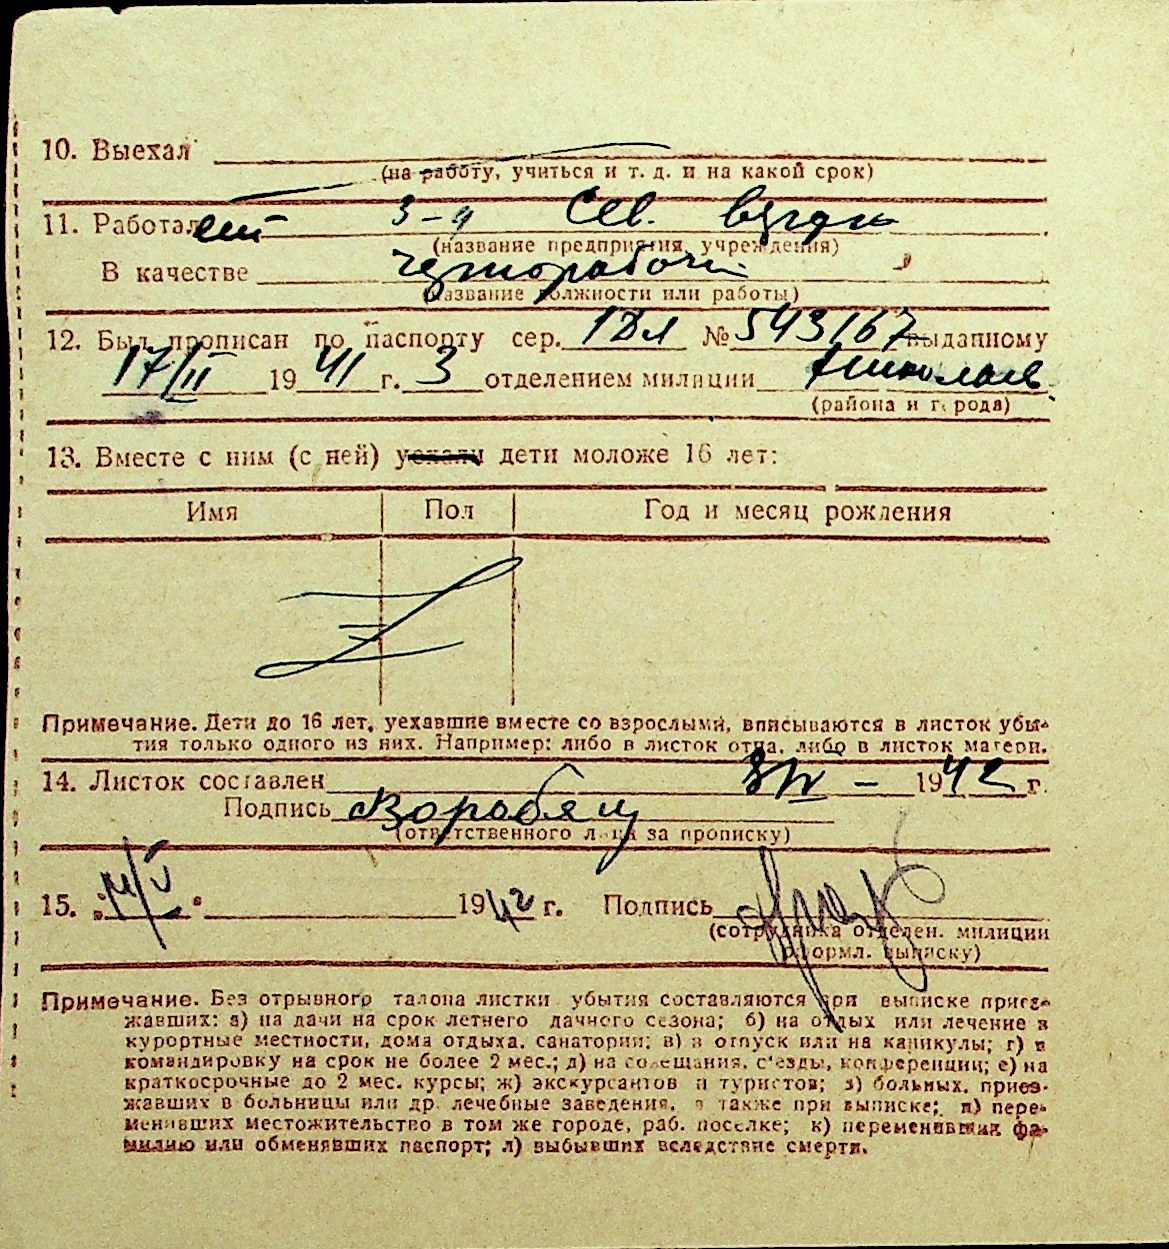 10. Выехал
(на работу, учиться и т. д. и на какой срок)
11. Работал ет 3-д Сев.
(название предприятия, учреждения)
В качестве чернорабочий
(название должности или работы)
12. Был прописан по паспорту сер. № 543167 выданному
17/II 1941 г. 3 отделением милиции Николаев
(района и города)
13. Вместе с ним (с ней) уехали дети моложе 16 лет:
Имя Пол Год и месяц рождения
Примечание. Дети до 16 лет, уехавшие вместе со взрослыми, вписываются в листок убы-
тия только одного из них. Например: либо в листок отца, либо в листок матери.
14. Листок составлен 3/IV — 1942 г.
Подпись
(ответственного лица за прописку)
15. 1942 г. Подпись
(сотрудника отделен. милиции
оформл. выписку)
Примечание. Без отрывного талона листки убытия составляются при выписке приез-
жавших: а) на дачи на срок летнего дачного сезона; б) на отдых или лечение в
курортные местности, дома отдыха, санатории; в) в отпуск или на каникулы; г) в
командировку на срок не более 2 мес.; д) на совещания, с'езды, конференции; е) на
краткосрочные до 2 мес. курсы; ж) экскурсантов и туристов; з) больных, приез-
жавших в больницы или др. лечебные заведения, а также при выписке; и) пере-
менивших местожительство в том же городе, раб. поселке; к) переменивших фа-
милию или обменявших паспорт; л) выбывших вследствие смерти.